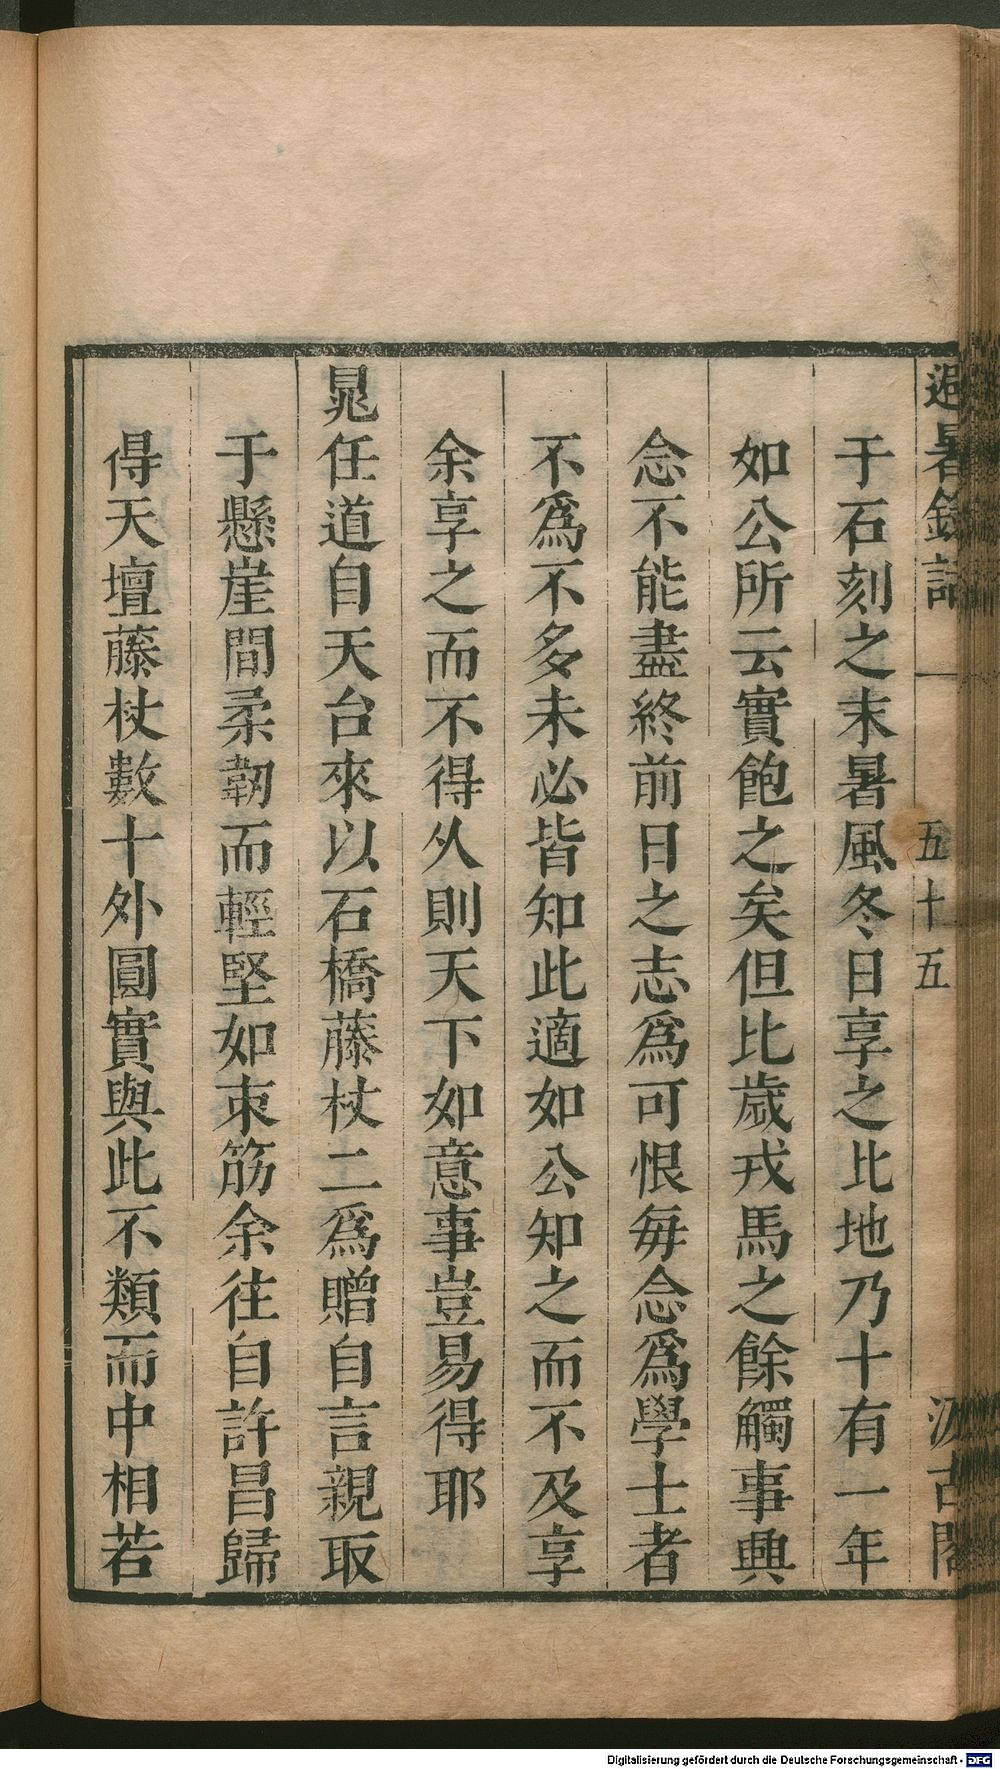 避暑錄話
五十五
汲古閣
于石刻之末暑風冬日享之比地乃十有一年
如公所云實飽之矣但比歲戎馬之餘觸事興
念不能盡終前日之志爲可恨每念爲學士者
不爲不多未必皆知此適如公知之而不及享
余享之而不得乆則天下如意事豈易得耶
晁任道自天台來以石橋藤杖二爲贈自言親取
于懸崖間柔韌而輕堅如束筋余往自許昌歸
得天壇藤杖數十外圓實與此不類而中相若
Digitalisierung gefördert durch die Deutsche Forschungsgemeinschaft - DFG